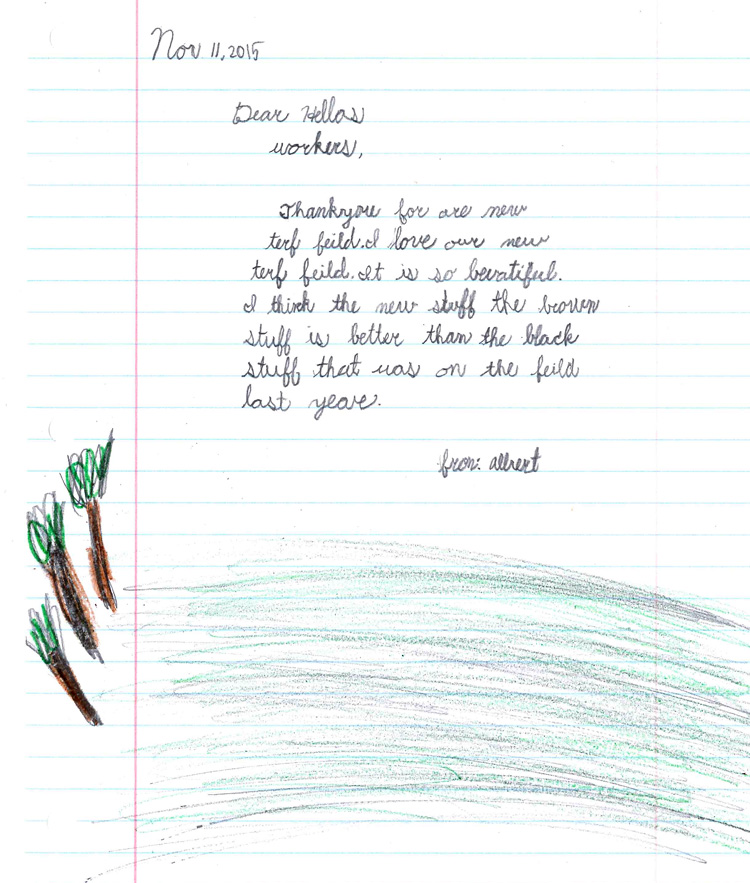 Nov 11, 2015
Dear Hellas
workers,
Thankyou for are new
terf feild. I love our new
terf feild. It is so beuatiful.
I think the new stuff the brown
stuff is better than the black
stuff that was on the feild
last yeare.
from: albert